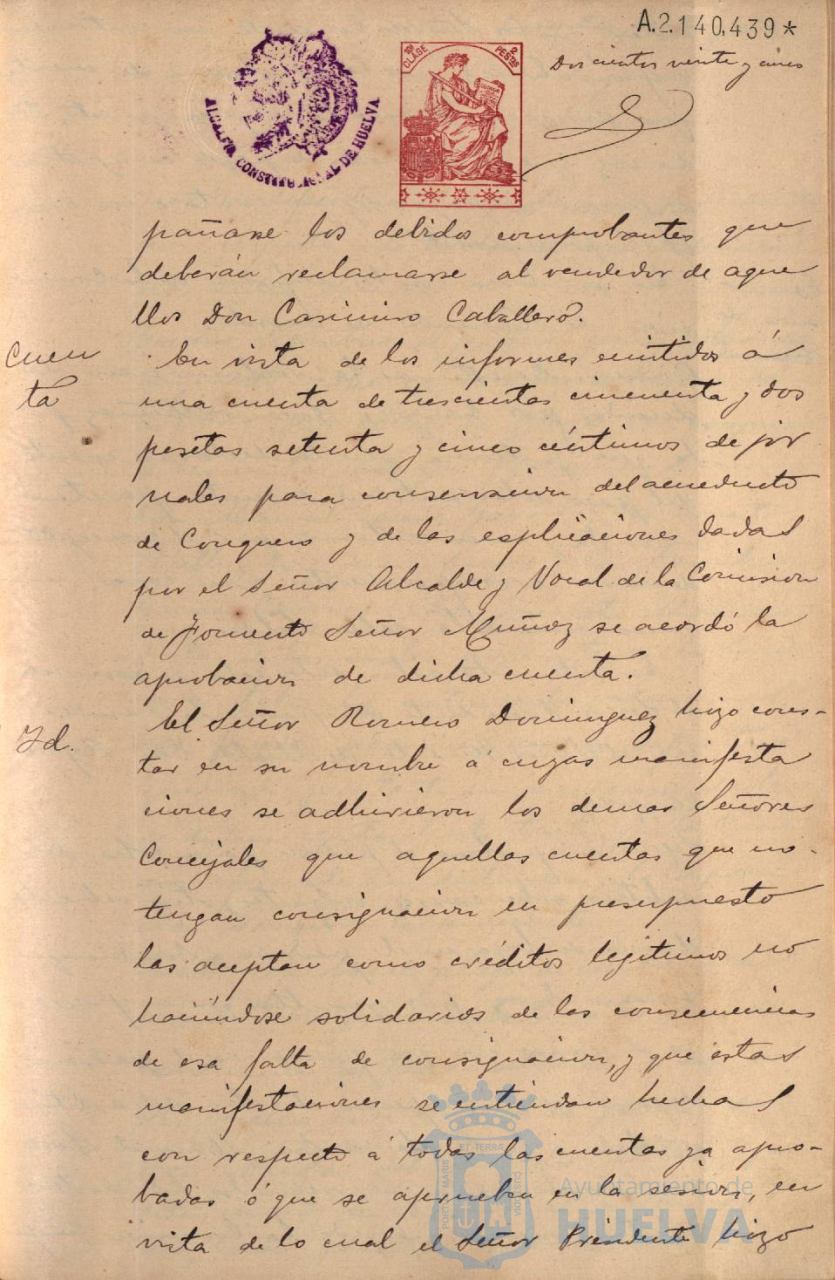 A.2.140,439*
Doscientos veinte y cinco
10ª CLASE
2 PESETAS
ALCALDIA CONSTITUCIONAL DE HUELVA
pañarse los debidos comprobantes que
deberán reclamarse al vendedor de aque
llos Don Casimiro Caballero.
Cuen
ta
En vista de los informes emitidos á
una cuenta de trescientas cincuenta y dos
pesetas setenta y cinco céntimos de jor
nales para conservacion del acueducto
de Conquero y de las esplicaciones dadas
por el Señor Alcalde y Vocal de la Comision
de Fomento Señor Muñoz se acordó la
aprobacion de dicha cuenta.
Id.
El Señor Romero Dominguez hizo cons-
tar en su nombre á cuyas manifesta
ciones se adhirieron los demas Señores
Concejales que aquellas cuentas que no-
tengan consignacion en presupuesto
las aceptan como créditos legitimos no
haciéndose solidarios de las consecuencias
de esa falta de consignacion, y que estas
manifestaciones se entiendan hechas
con respecto á todas las cuentas ya apro-
badas ó que se aprueben en la sesion, en
vista de lo cual el Señor Presidente hizo
Ayuntamiento de
HUELVA